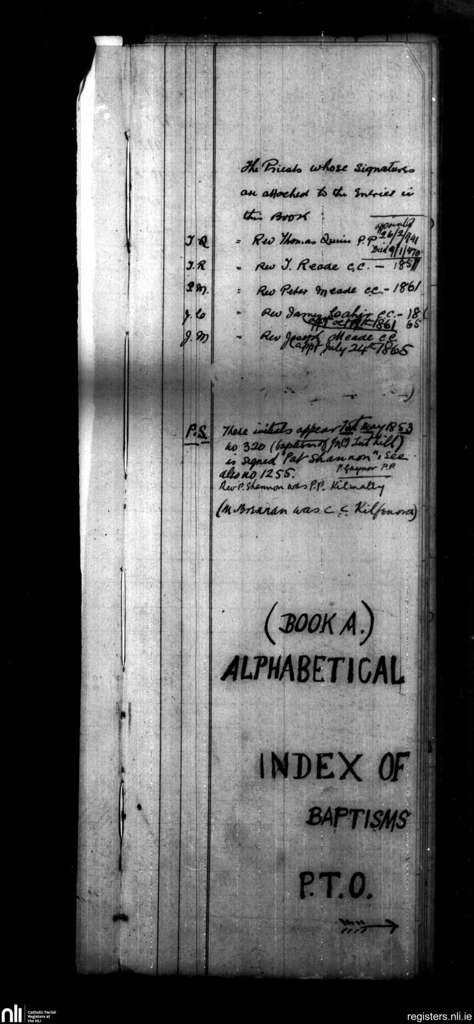 The Priests whose signatures
are attached to the Entries in
this Book
appointed
T.Q = Rev Thomas Quinn P.P. 26/2/1841
Died 9/1/
T.R = Rev T. Reade C.C. — 1851
P.M. = Rev Peter Meade cc. - 1861
J.C = Rev James C.C. - 18
1861 65
J.M = Rev Joseph Meade cc
(appt July 24th 1865
P.S. These initials appear 1st May 1853
no 320 (baptism of
is signed "Pat Shannon". See
also no 1255. P. Gaynor P.P.
Rev P. Shannon was P.P. Kilmaley
(M. was C.C. Kilfenora)
(BOOK A.)
ALPHABETICAL
INDEX OF
BAPTISMS
P.T.O.
nli Catholic Parish
Registers at
the NLI
registers.nli.ie